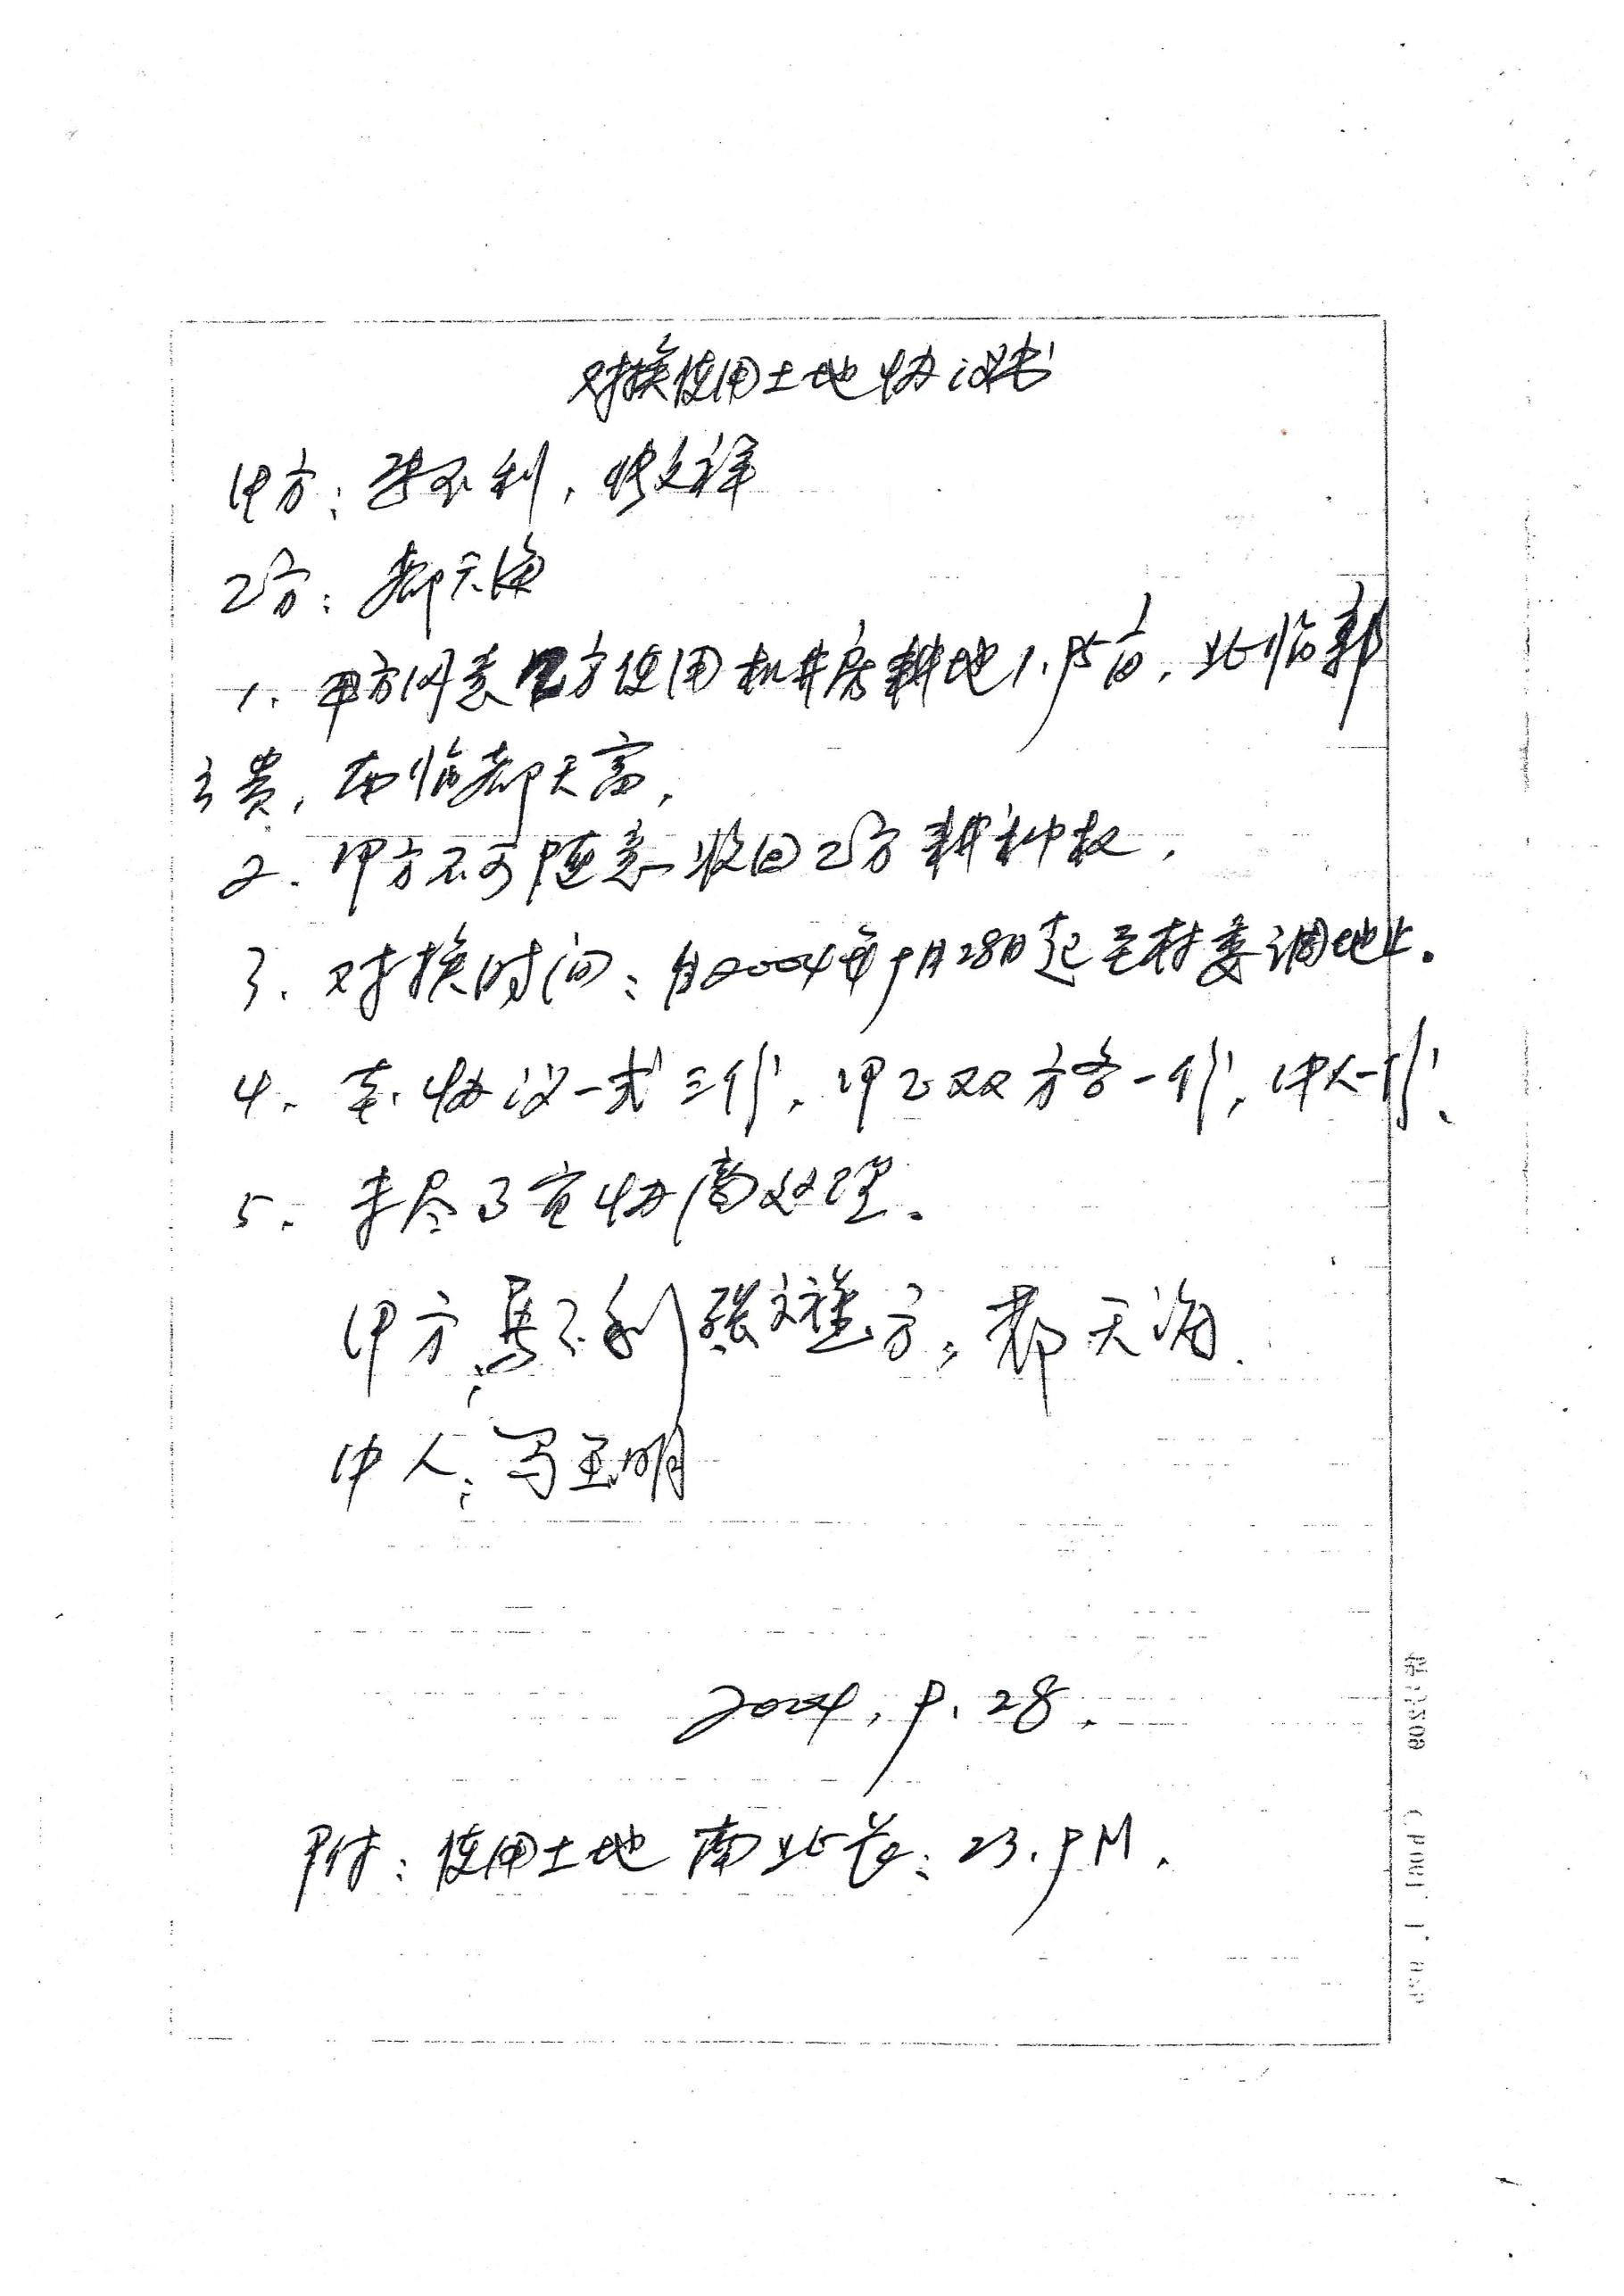 对换使用土地协议书
甲方：不利，张文祥
乙方：郝天海
1、甲方同意乙方使用机井房耕地1.95亩，北临郭
贵，西临郝天富，
2、甲方不可随意收回乙方耕种权，
3、对换时间：自2004年9月28日起至村委调地止。
4、本协议一式三份，甲乙双方各一份，中人一份、
5、未尽事宜协商处理。
甲方：不利 张文祥 乙方：郝天海
中人：冯玉明
2004.9.28.
附：使用土地南北长：23.9M.